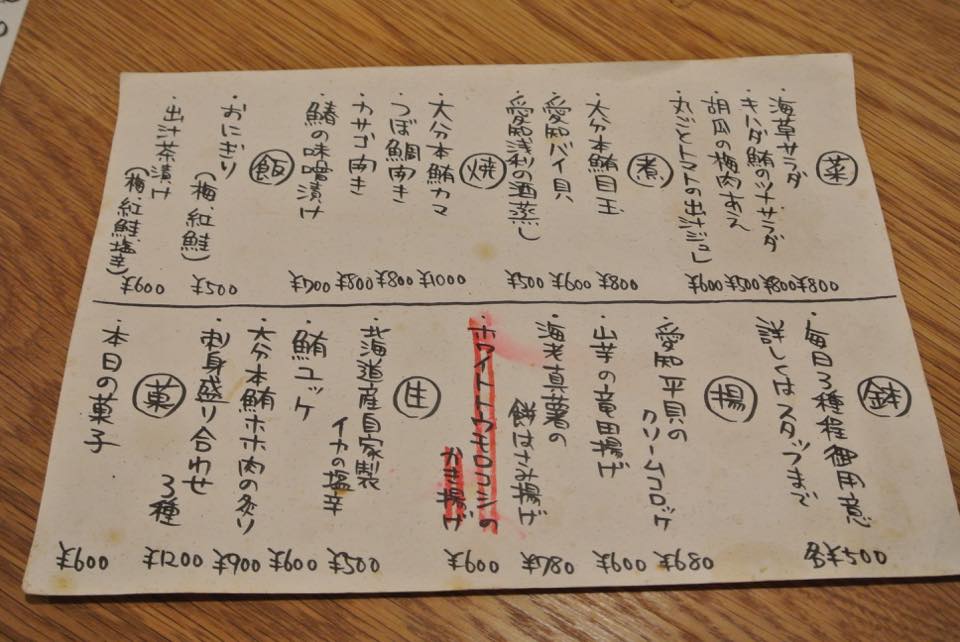 菜
・海草サラダ ¥800
・キハダ鮪のツナサラダ ¥800
・胡瓜の梅肉あえ ¥500
・丸ごとトマトの出汁ジュレ ¥600
煮
・大分本鮪目玉 ¥800
・愛知バイ貝 ¥600
・愛知浅利の酒蒸し ¥500
焼
・大分本鮪カマ ¥1000
・つぼ鯛開き ¥800
・カサゴ開き ¥800
・鯖の味噌漬け ¥700
飯
・おにぎり
(梅・紅鮭) ¥500
・出汁茶漬け
(梅・紅鮭・塩辛) ¥600
鉢
・毎日3種程御用意
詳しくはスタッフまで
各¥500
揚
・愛知平貝の
クリームコロッケ ¥680
・山芋の竜田揚げ ¥600
・海老真薯の
餅はさみ揚げ ¥780
・ホワイトトウモロコシの
かき揚げ ¥600
生
・北海道産自家製
イカの塩辛 ¥500
・鮪ユッケ ¥600
・大分本鮪ホホ肉の炙り ¥900
・刺身盛り合わせ
3種 ¥1200
菓
・本日の菓子 ¥600